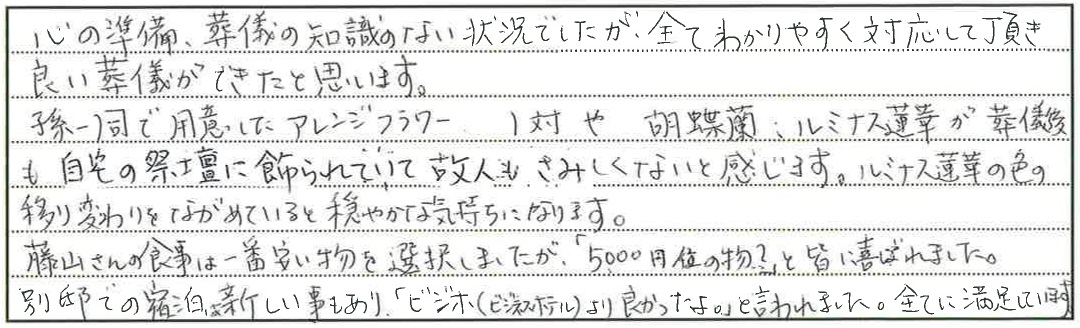 心の準備、葬儀の知識のない状況でしたが、全てわかりやすく対応して頂き
良い葬儀ができたと思います。
孫一同で用意したアレンジフラワー 1対や 胡蝶蘭、ルミナス蓮華が葬儀後
も自宅の祭壇に飾られていて故人もさみしくないと感じます。ルミナス蓮華の色の
移り変わりをながめていると穏やかな気持ちになります。
藤山さんの食事は一番安い物を選択しましたが、「5000円位の物?」と皆に喜ばれました。
別邸での宿泊は新しい事もあり、「ビジホ(ビジネスホテル)より良かったよ。」と言われました。全てに満足しています